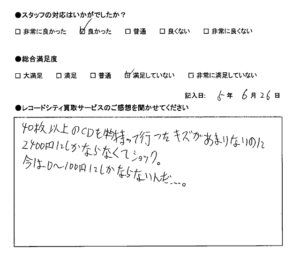 ●スタッフの対応はいかがでしたか?
□ 非常に良かった ☑ 良かった □ 普通 □ 良くない □ 非常に良くない
●総合満足度
□ 大満足 □ 満足 □ 普通 ☑ 満足していない □ 非常に満足していない
記入日: 5年 6月 26日
●レコードシティ買取サービスのご感想を聞かせてください
40枚以上のCDを持って行ってキズがあまりないのに
2400円にしかならなくてショック。
今は0〜100円にしかならないんだ…。